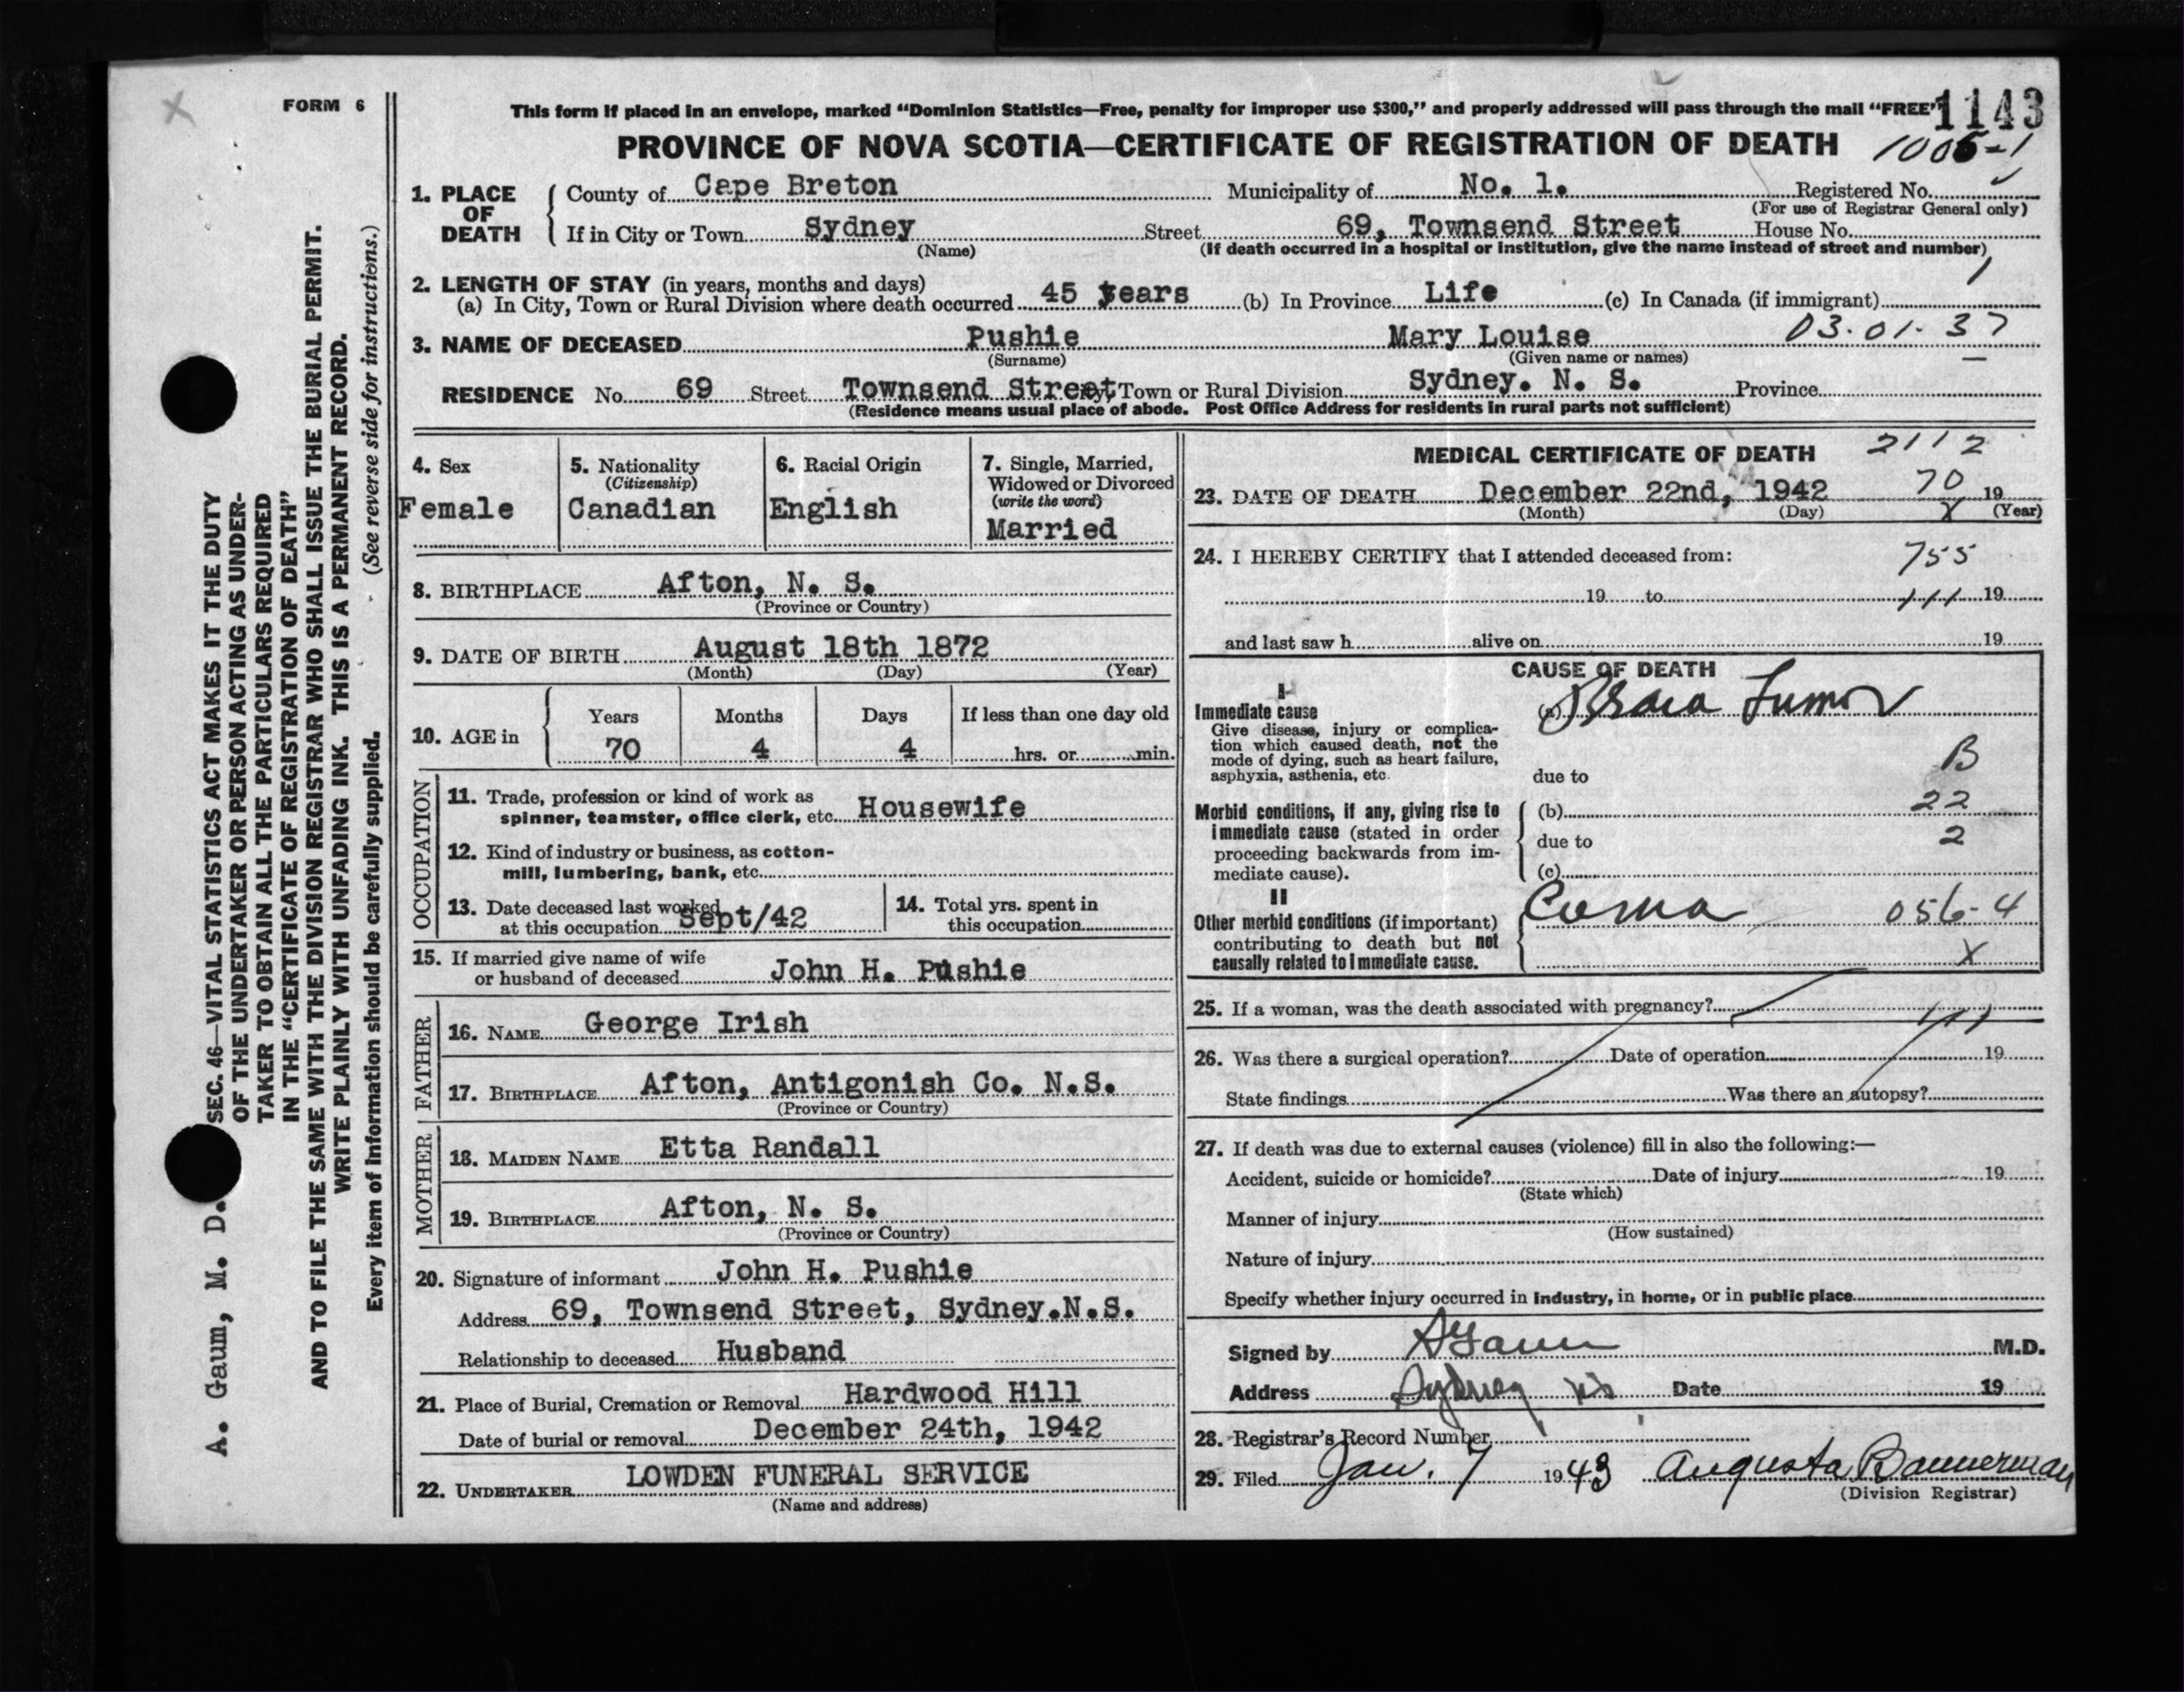 FORM 6
This form if placed in an envelope, marked “Dominion Statistics—Free, penalty for improper use $300,” and properly addressed will pass through the mail “FREE”
1143
PROVINCE OF NOVA SCOTIA—CERTIFICATE OF REGISTRATION OF DEATH
1. PLACE OF DEATH
County of Cape Breton Municipality of No. 1. Registered No.
(For use of Registrar General only)
If in City or Town Sydney Street 69, Townsend Street House No.
(Name) (If death occurred in a hospital or institution, give the name instead of street and number)
2. LENGTH OF STAY (in years, months and days)
(a) In City, Town or Rural Division where death occurred 45 years (b) In Province Life (c) In Canada (if immigrant)
3. NAME OF DECEASED Pushie Mary Louise 03.01.37
(Surname) (Given name or names)
RESIDENCE No. 69 Street Townsend Street Town or Rural Division Sydney. N. S. Province
(Residence means usual place of abode. Post Office Address for residents in rural parts not sufficient)
4. Sex
Female
5. Nationality
(Citizenship)
Canadian
6. Racial Origin
English
7. Single, Married,
Widowed or Divorced
(write the word)
Married
8. BIRTHPLACE Afton, N. S.
(Province or Country)
9. DATE OF BIRTH August 18th 1872
(Month) (Day) (Year)
10. AGE in
Years Months Days If less than one day old
70 4 4 hrs. or min.
OCCUPATION
11. Trade, profession or kind of work as
spinner, teamster, office clerk, etc. Housewife
12. Kind of industry or business, as cotton-
mill, lumbering, bank, etc.
13. Date deceased last worked
at this occupation Sept/42
14. Total yrs. spent in
this occupation
15. If married give name of wife
or husband of deceased John H. Pushie
FATHER
16. NAME George Irish
17. BIRTHPLACE Afton, Antigonish Co. N.S.
(Province or Country)
MOTHER
18. MAIDEN NAME Etta Randall
19. BIRTHPLACE Afton, N. S.
(Province or Country)
20. Signature of informant John H. Pushie
Address 69, Townsend Street, Sydney.N.S.
Relationship to deceased Husband
21. Place of Burial, Cremation or Removal Hardwood Hill
Date of burial or removal December 24th, 1942
22. UNDERTAKER LOWDEN FUNERAL SERVICE
(Name and address)
MEDICAL CERTIFICATE OF DEATH 2112
23. DATE OF DEATH December 22nd, 1942 70 19
(Month) (Day) X (Year)
24. I HEREBY CERTIFY that I attended deceased from: 755
19 to 111 19
and last saw h alive on 19
CAUSE OF DEATH
I
Immediate cause (a) Brain Tumor
Give disease, injury or complica-
tion which caused death, not the
mode of dying, such as heart failure,
asphyxia, asthenia, etc.
due to
B
Morbid conditions, if any, giving rise to
immediate cause (stated in order
proceeding backwards from im-
mediate cause).
(b) 22
due to 2
(c)
II
Other morbid conditions (if important)
contributing to death but not
causally related to immediate cause.
Coma 056-4
X
25. If a woman, was the death associated with pregnancy?
111
26. Was there a surgical operation? Date of operation 19
State findings Was there an autopsy?
27. If death was due to external causes (violence) fill in also the following:—
Accident, suicide or homicide? Date of injury 19
(State which)
Manner of injury
(How sustained)
Nature of injury
Specify whether injury occurred in industry, in home, or in public place
Signed by A Gaum M.D.
Address Sydney NS Date 19
28. Registrar's Record Number
29. Filed Jan. 7 1943 Augusta Bannerman
(Division Registrar)
SEC. 46—VITAL STATISTICS ACT MAKES IT THE DUTY
OF THE UNDERTAKER OR PERSON ACTING AS UNDER-
TAKER TO OBTAIN ALL THE PARTICULARS REQUIRED
IN THE “CERTIFICATE OF REGISTRATION OF DEATH”
AND TO FILE THE SAME WITH THE DIVISION REGISTRAR WHO SHALL ISSUE THE BURIAL PERMIT.
WRITE PLAINLY WITH UNFADING INK. THIS IS A PERMANENT RECORD.
Every item of information should be carefully supplied. (See reverse side for instructions.)
A. Gaum, M. D.